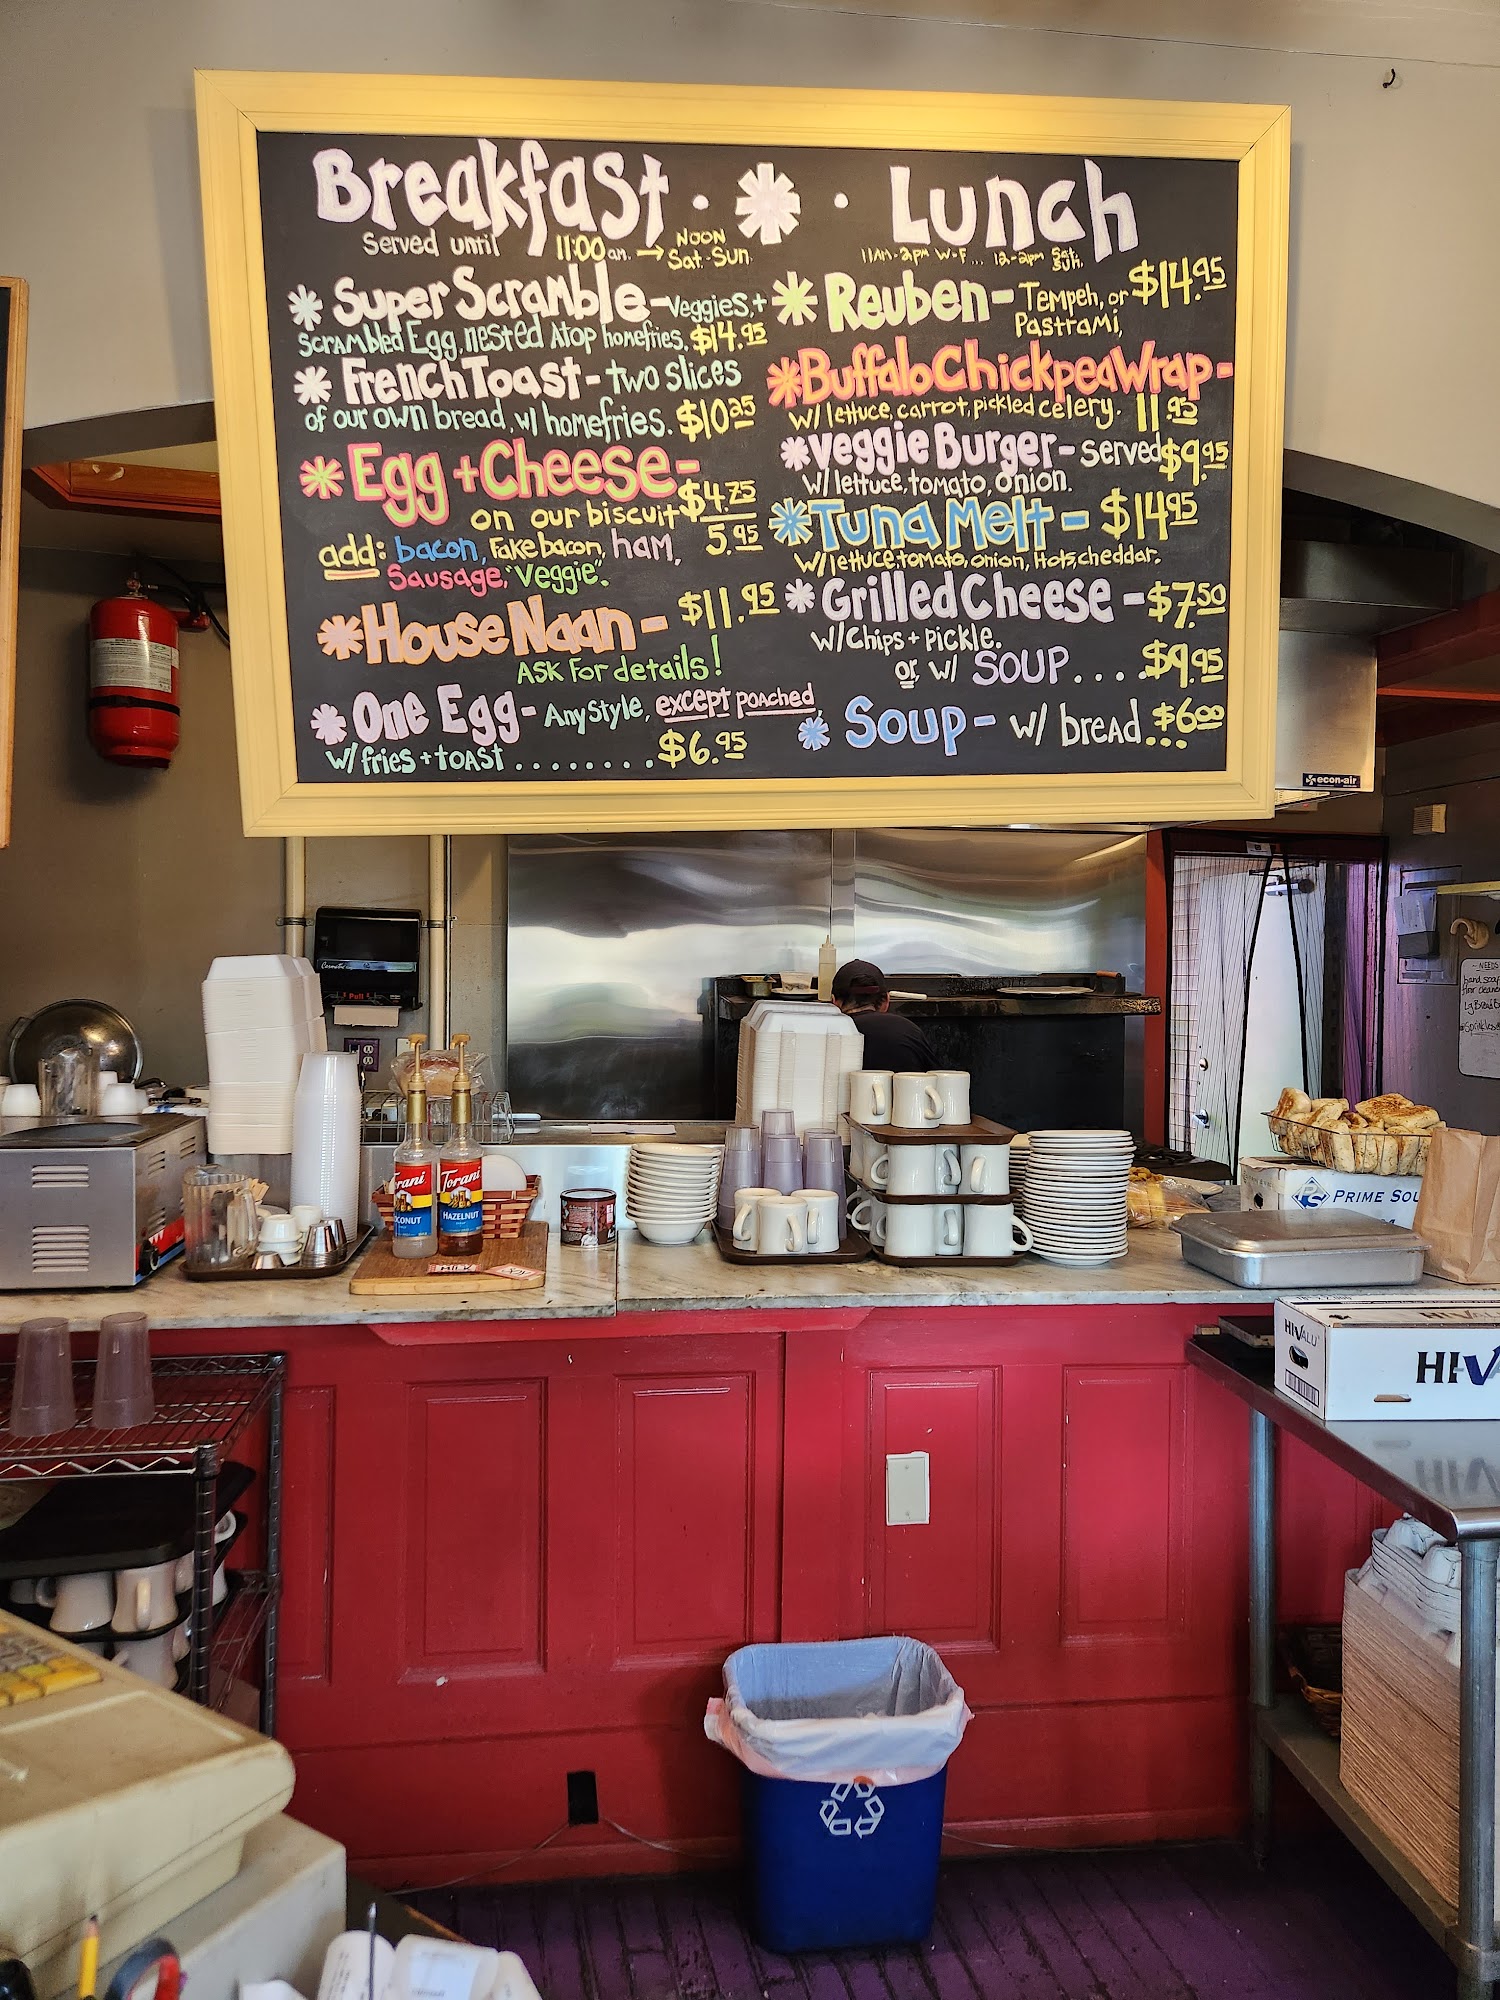 Breakfast · * · Lunch
Served until 11:00 am. → NOON Sat.-Sun.
* Super Scramble - veggies, +
Scrambled Egg, nested Atop homefries. $14.95
* French Toast - two slices
of our own bread, w/ homefries. $10.25
* Egg + Cheese -
on our biscuit $4.75
add: bacon, Fake bacon, ham, 5.95
Sausage, "Veggie".
* House Naan - $11.95
ASK For details!
* One Egg - Any Style, except poached,
w/ fries + toast ........ $6.95
11AM-2pm W-F... 12-2pm Sat. Sun.
* Reuben - Tempeh, or $14.95
Pastrami,
* Buffalo Chickpea Wrap -
w/ lettuce, carrot, pickled celery. 11.95
* Veggie Burger - Served $9.95
w/ lettuce, tomato, onion.
* Tuna Melt - $14.95
w/ lettuce, tomato, onion, Hots, cheddar.
* Grilled Cheese - $7.50
w/ Chips + pickle.
or, w/ SOUP .... $9.95
* Soup - w/ bread... $6.00
econ-air
Pull
Torani
HAZELNUT
Torani
PS PRIME SOU
NEEDS
hand soap
HIVALU
HIV